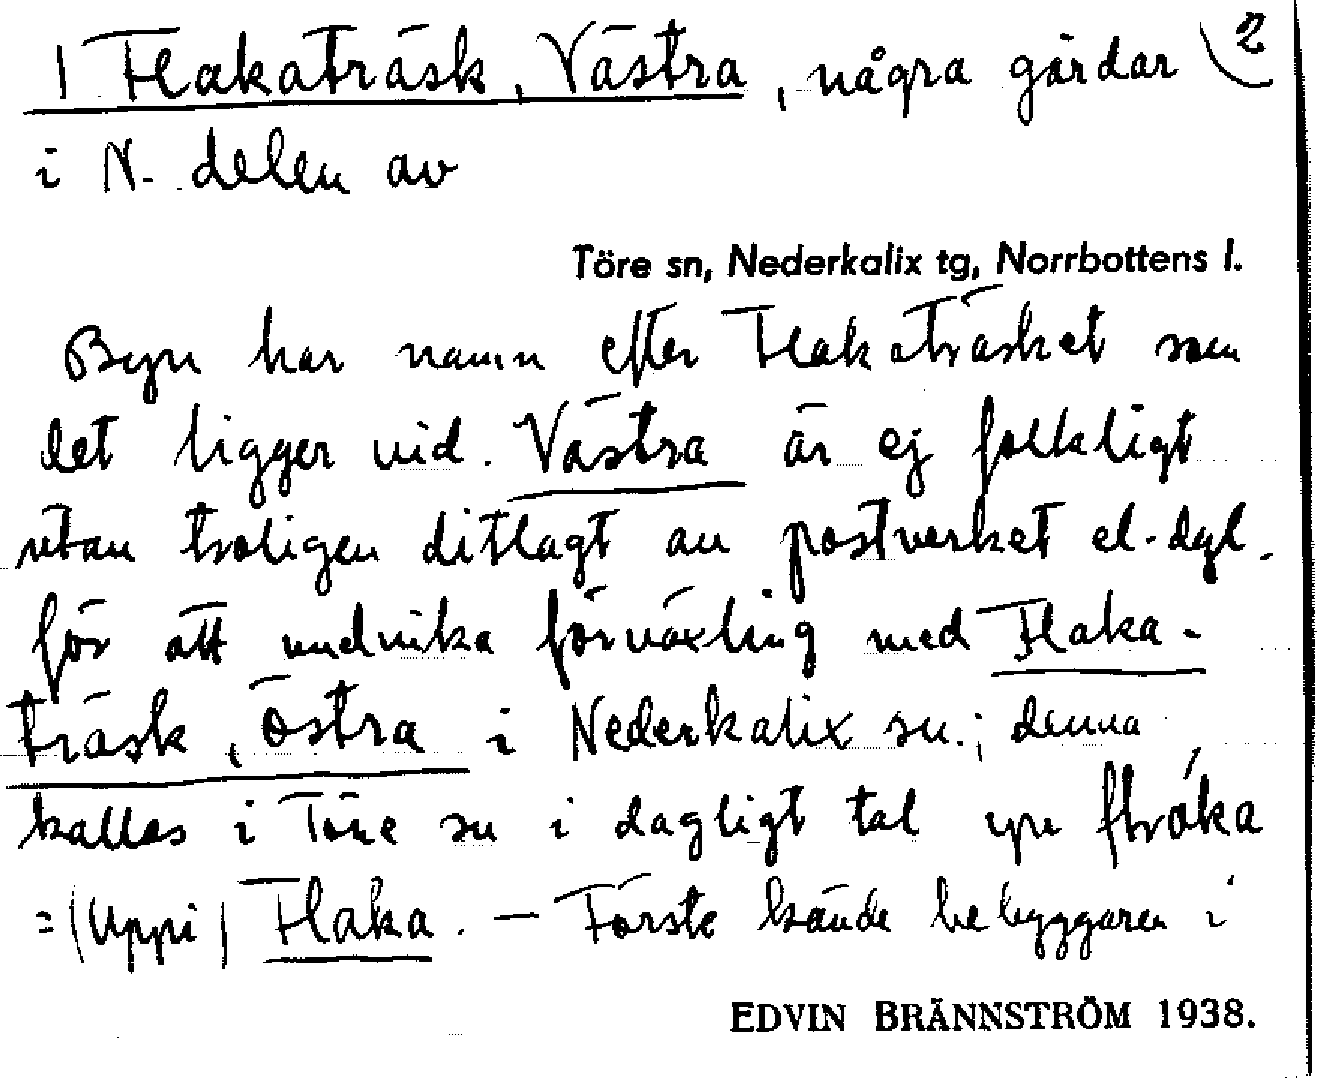 1 Flakaträsk, Västra, några gårdar 2
i N. delen av
Töre sn, Nederkalix tg, Norrbottens l.
Byn har namn efter Flakaträsket som
det ligger vid. Västra är ej folkligt
utan troligen ditlagt av postverket el. dyl.
för att undvika förväxling med Flaka-
träsk, Östra i Nederkalix sn.; denna
kallas i Töre sn i dagligt tal
=(Uppi) Flaka. — Förste kände bebyggaren i
EDVIN BRÄNNSTRÖM 1938.